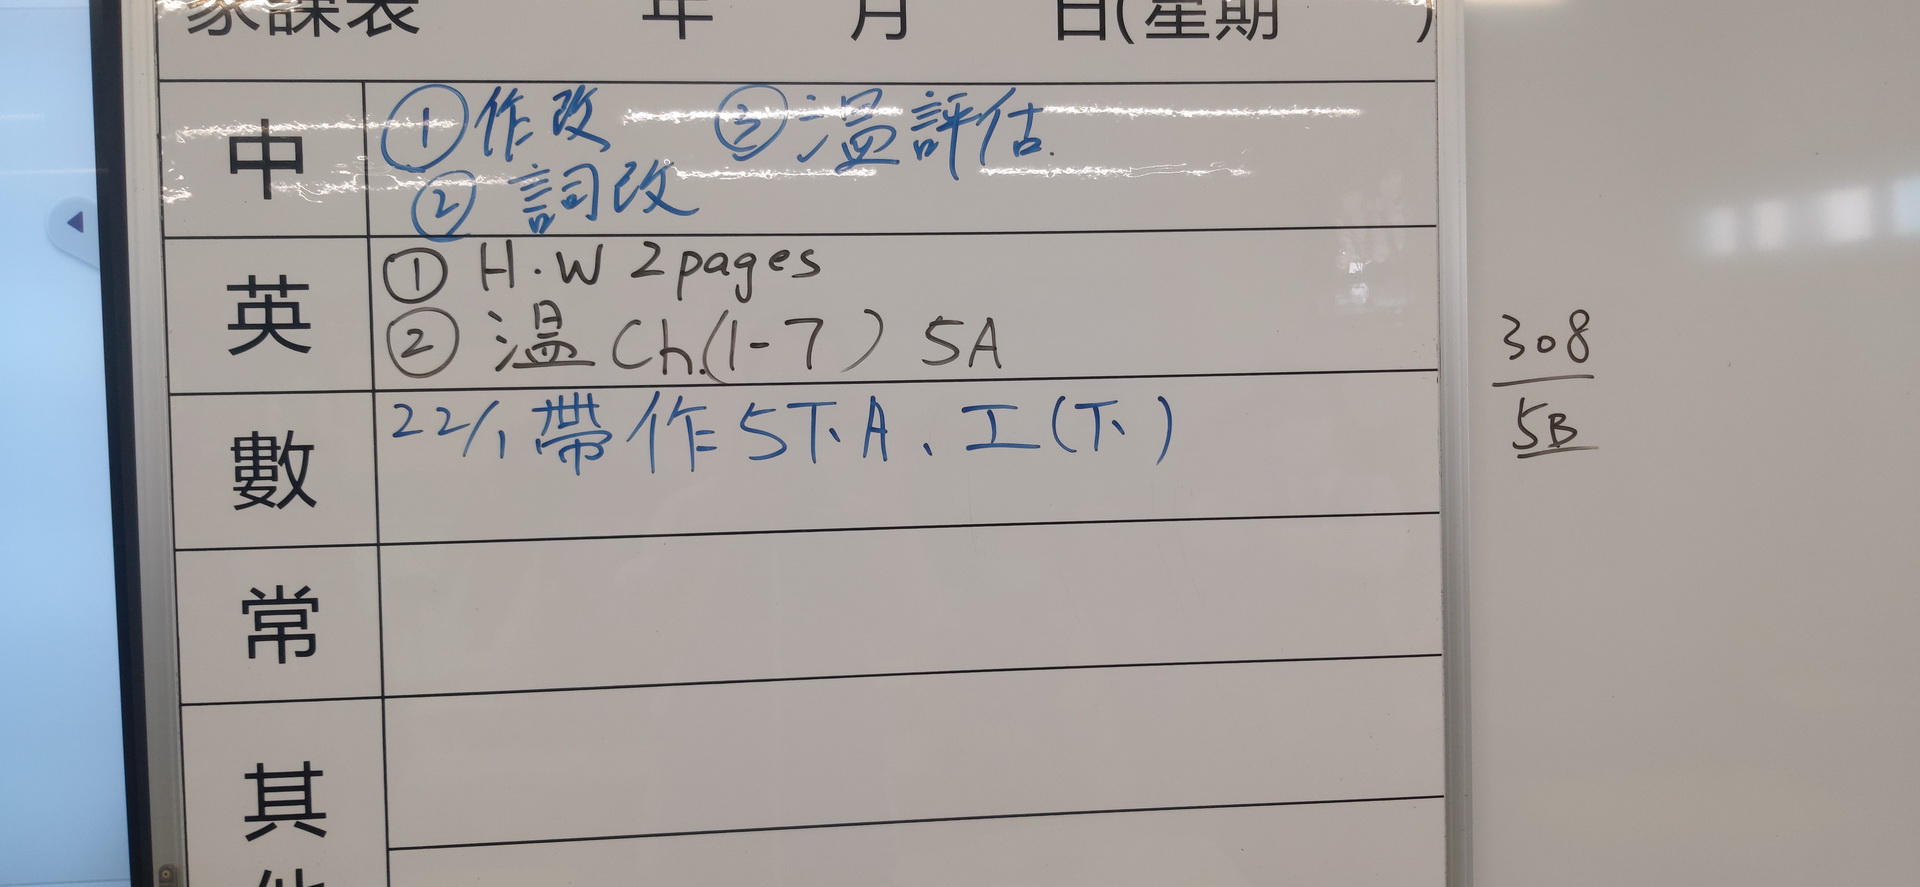 家課表 年 月 日(星期 )
中 ①作改 ③温評估.
②詞改
英 ① H.W 2pages
② 温 Ch.(1-7) 5A
數 22/1 帶作5下A、工(下)
常
其他
308
5B